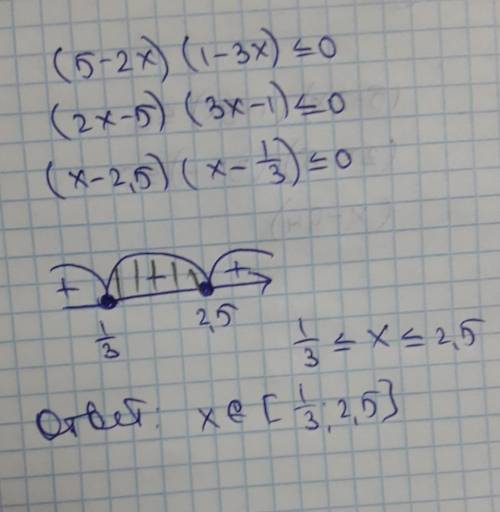 (5-2x) (1-3x) ≤ 0
(2x-5) (3x-1) ≤ 0
(x-2,5) (x-1/3) ≤ 0
+ + +
1/3 2,5
1/3 ≤ x ≤ 2,5
Ответ: x ∈ [1/3; 2,5]